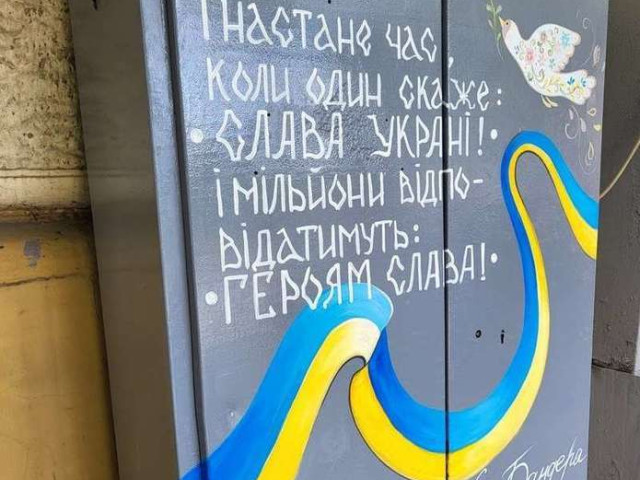 І настане час,
коли один скаже:
• СЛАВА УКРАНІ! •
і мільйони відпо-
відатимуть:
• ГЕРОЯМ СЛАВА! •
Бандера